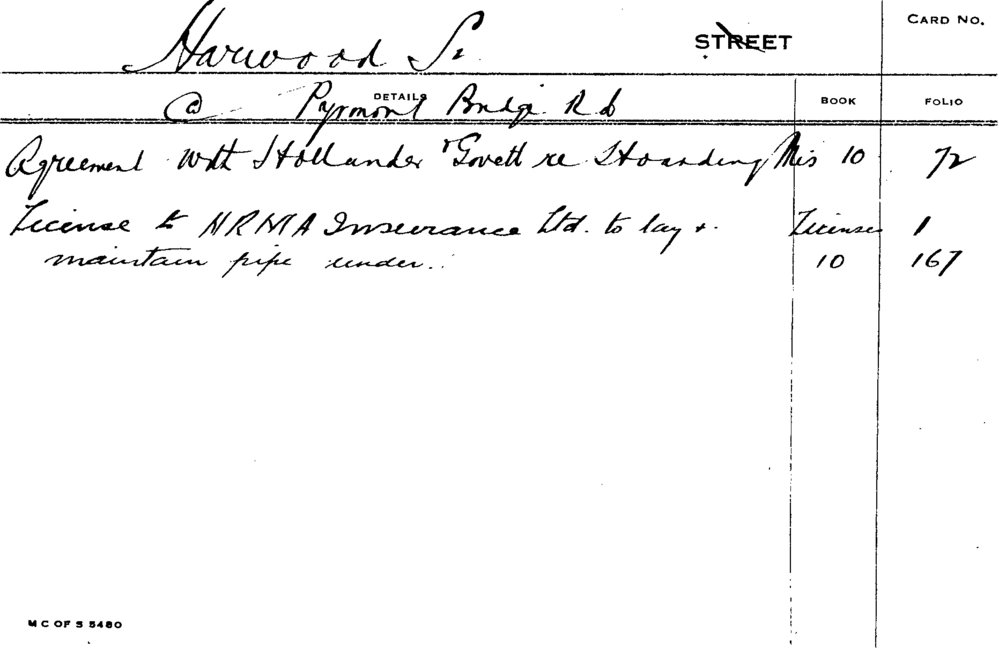 Harwood St. STREET CARD NO.
@ Pyrmont Bridge Rd DETAILS BOOK FOLIO
Agreement with Hollander & Govett re Hoarding Mis 10 72
License to NRMA Insurance Ltd. to lay & License 1
maintain pipe under. 10 167
M C OF S 5480